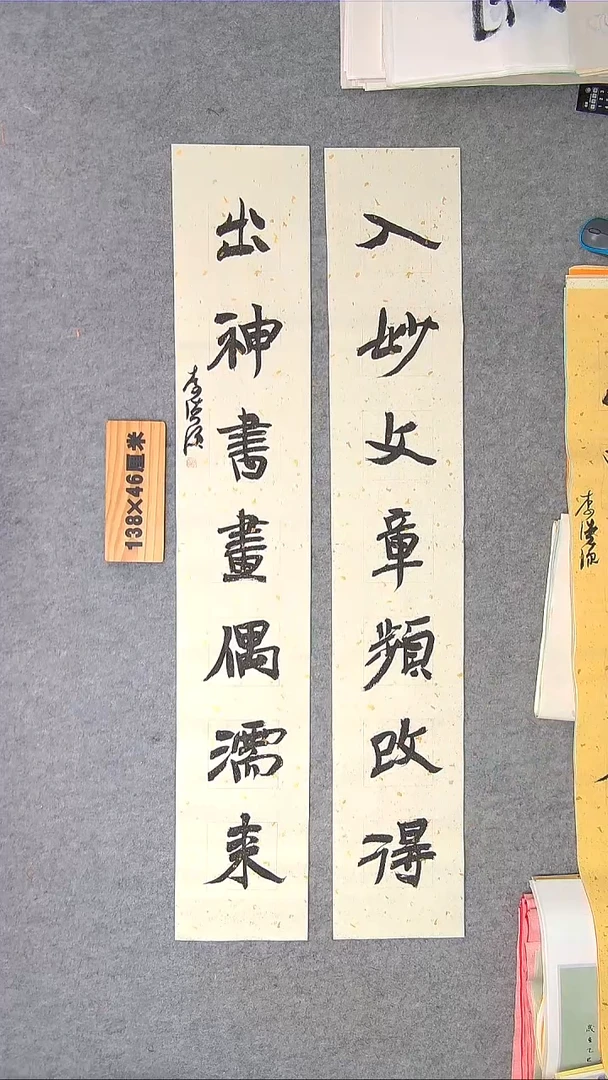 入妙文章頻改得
出神書畫偶濡来
李洪順
138×46厘米